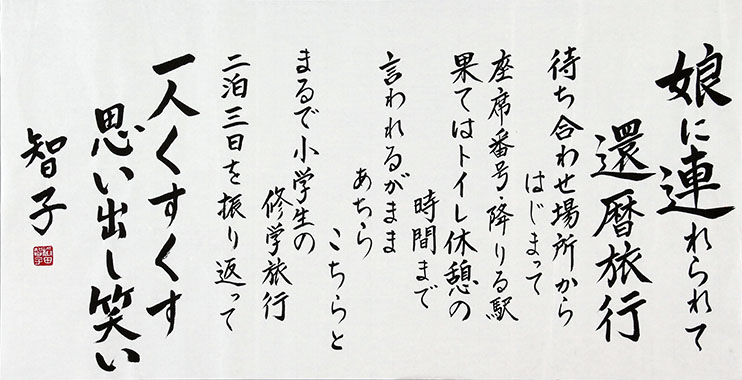 娘に連れられて
還暦旅行
待ち合わせ場所から
はじまって
座席番号・降りる駅
果てはトイレ休憩の
時間まで
言われるがまま
あちら
こちらと
まるで小学生の
修学旅行
二泊三日を振り返って
一人くすくす
思い出し笑い
智子